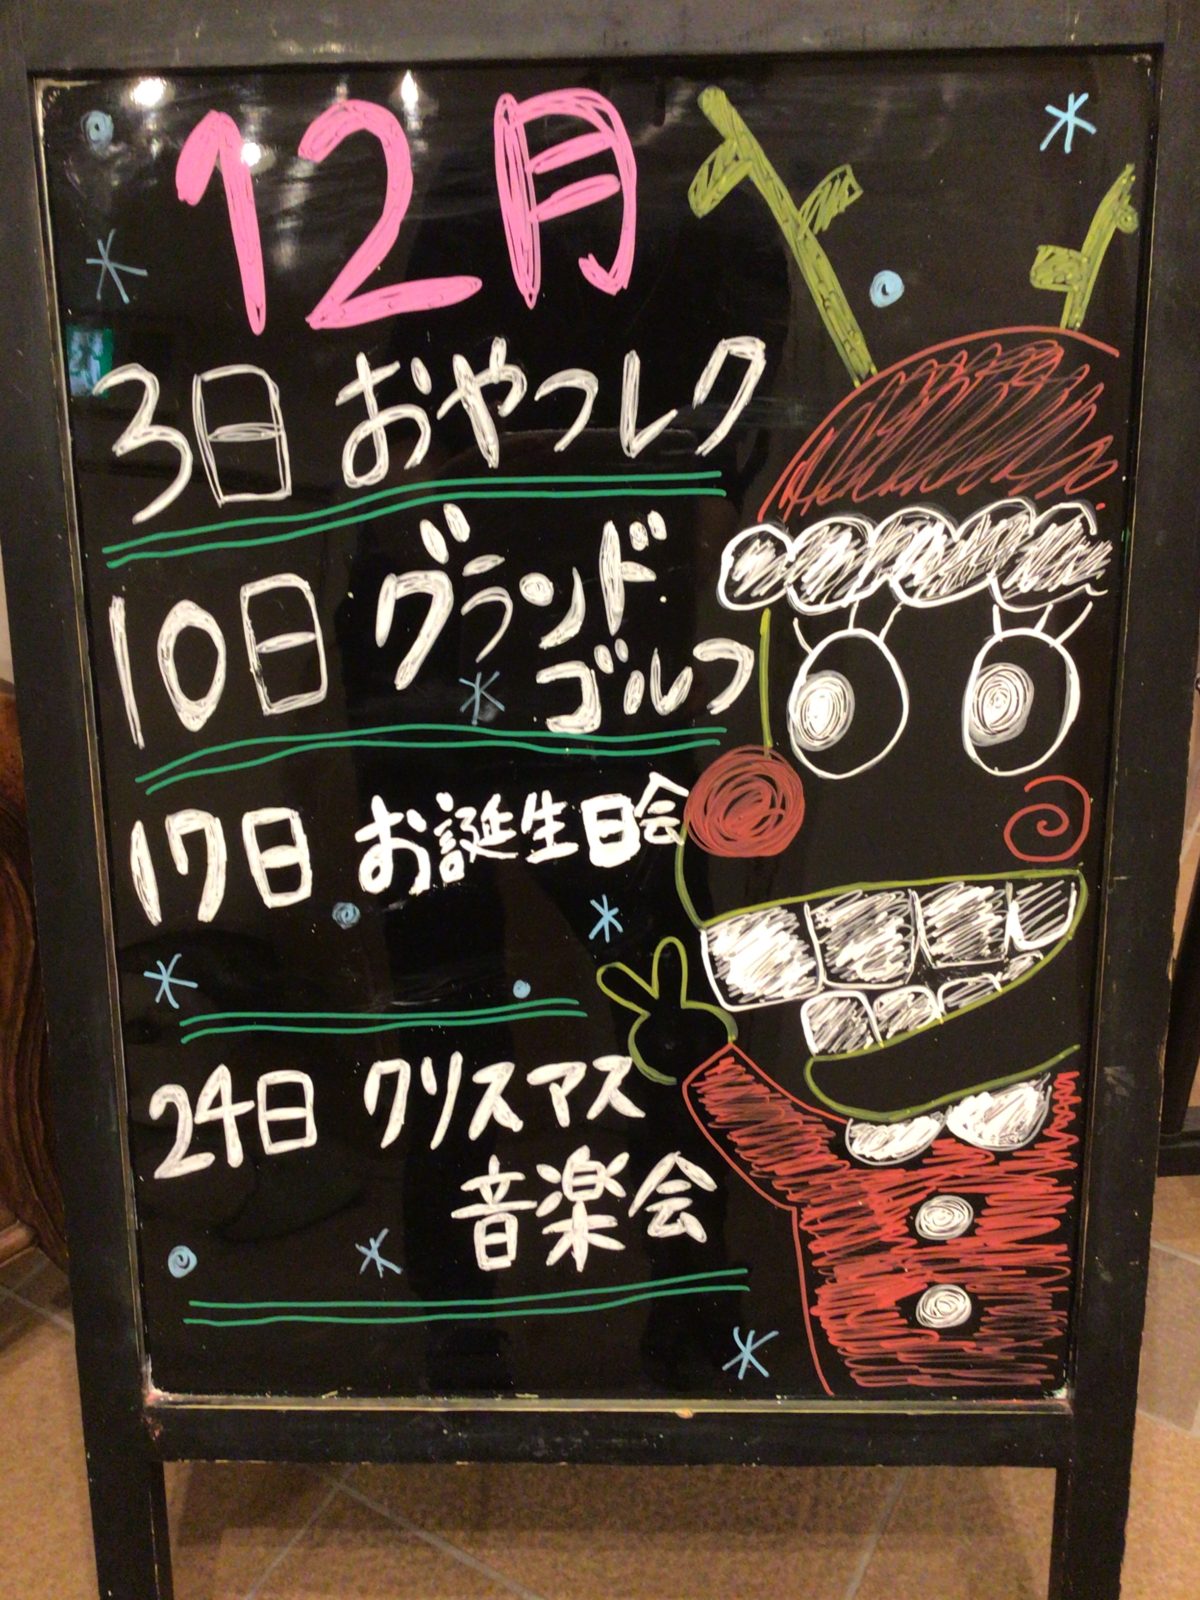 12月
3日 おやつレク
10日 グランド
ゴルフ
17日 お誕生日会
24日 クリスマス
音楽会